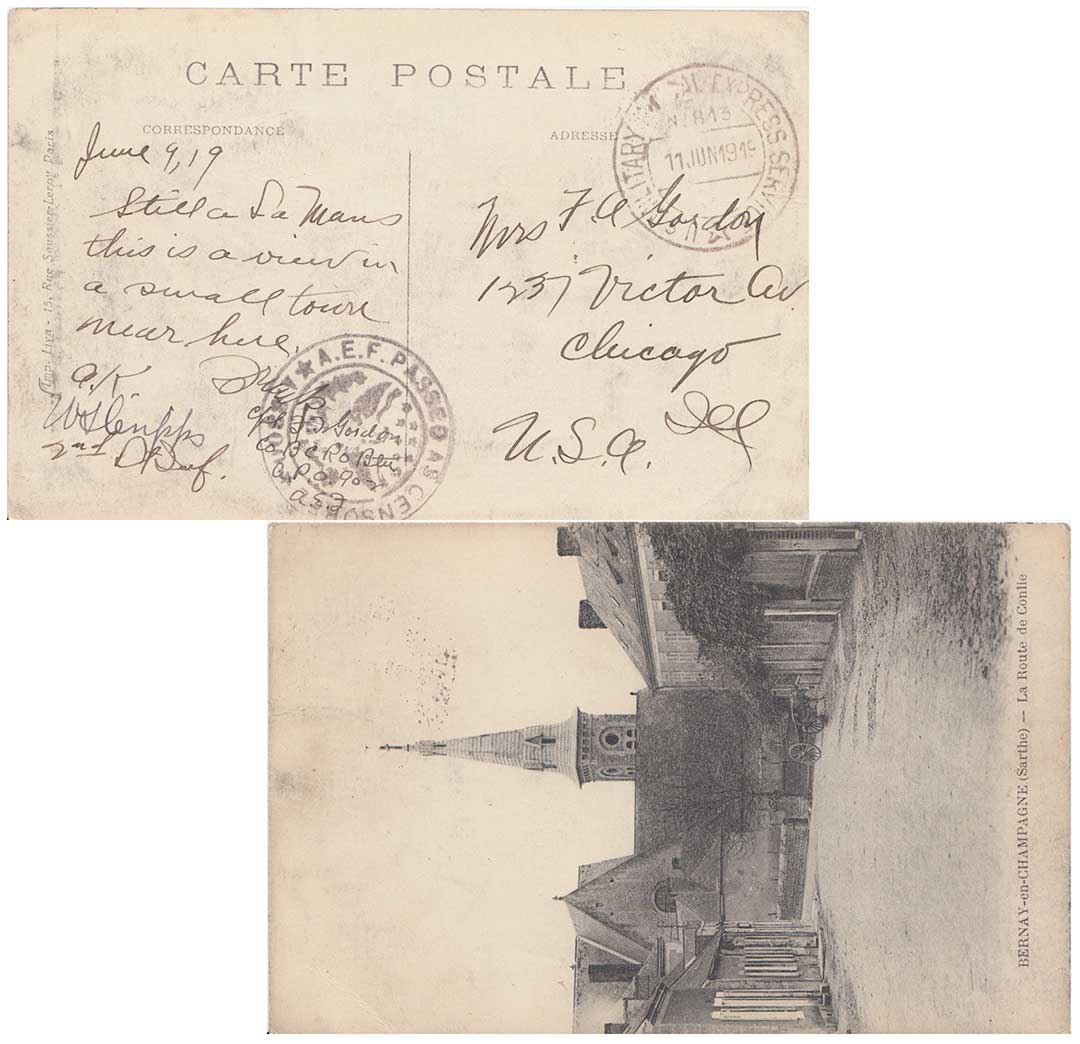 CARTE POSTALE
CORRESPONDANCE
ADRESSE
Imp. Liva - 15, Rue Saussier-Leroy Paris
MILITARY POSTAL EXPRESS SERVICE
Nº 813
11 JUN 1919
U.S.A.
June 9, 19
Still a La Mans
this is a view in
a small town
near here.
O.K.
2nd
Cpl F S Gordon
Co B C Ro
A.P.O. 902
A E F
A.E.F. PASSED AS CENSORED
Mrs F A Gordon
1237 Victor Av
Chicago
Ill
U.S.A.
BERNAY-en-CHAMPAGNE (Sarthe) — La Route de Conlie